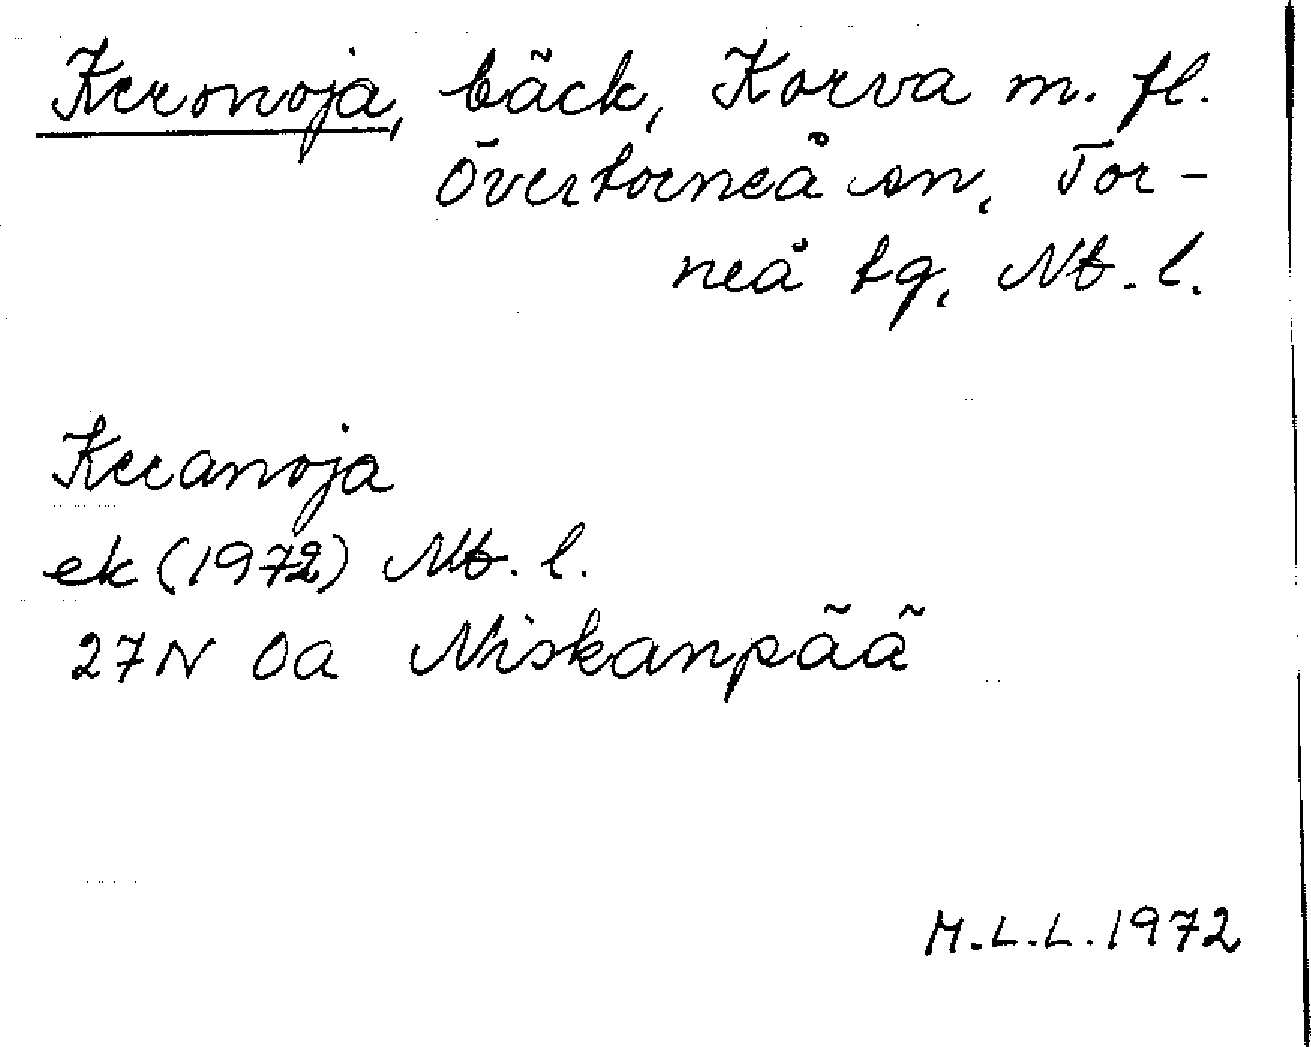 Keronoja, bäck, Korva m. fl.
Övertorneå sn, Tor-
neå tg, Nb. l.
Keranoja
ek (1972) Nb. l.
27N 0a Niskanpää
M.L.L. 1972